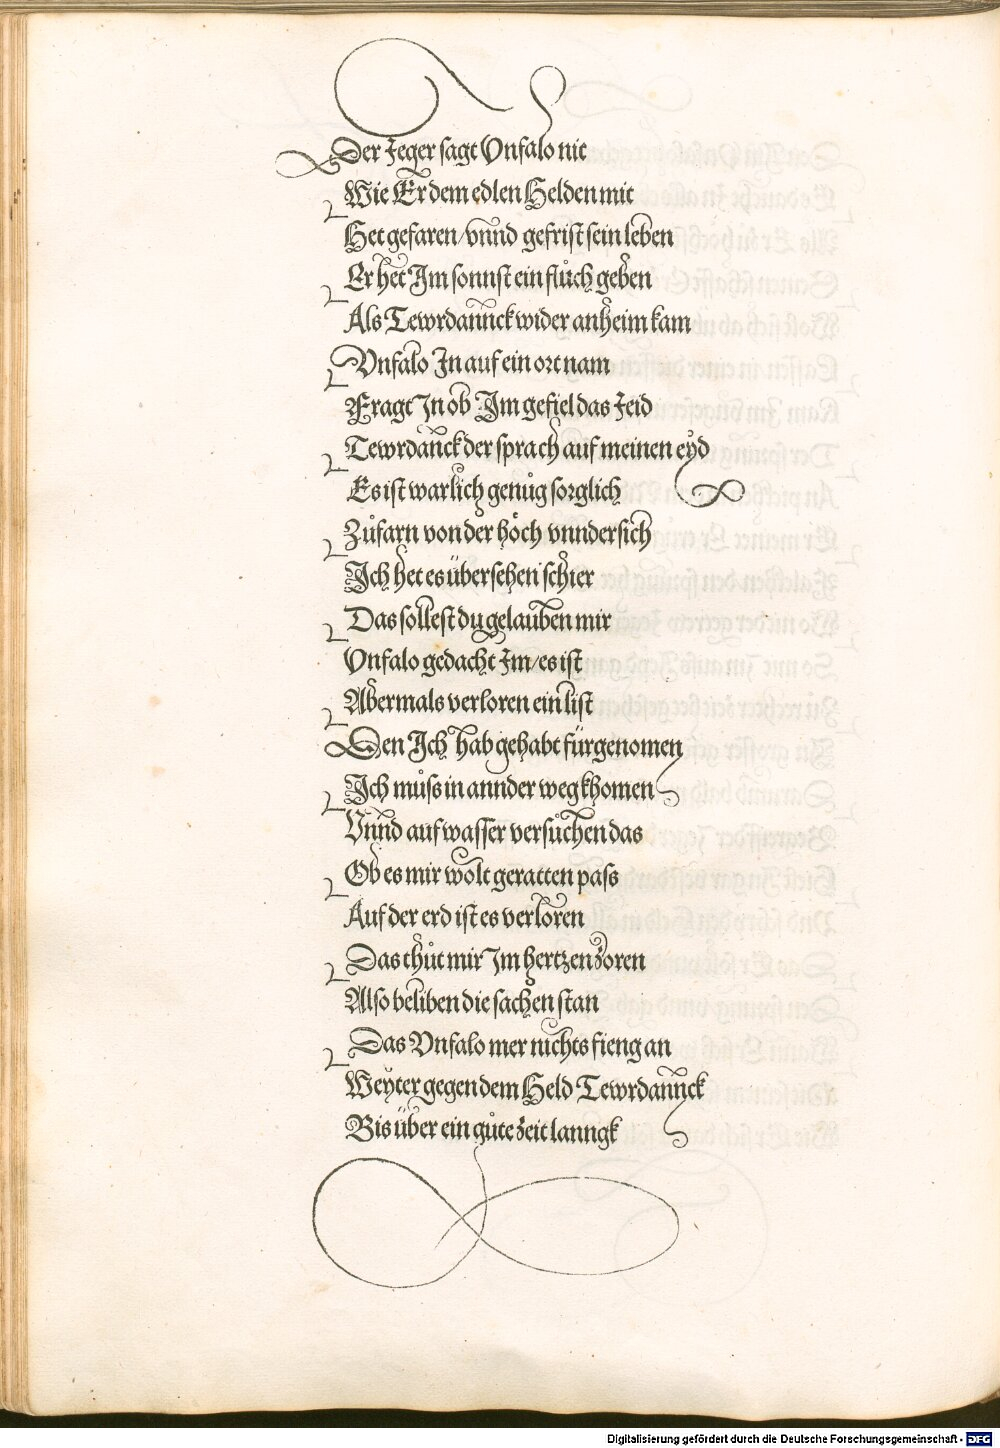 Der Jeger sagt Unfalo nit
Wie Er dem edlen Helden mit
Het gefaren/ vnnd gefrist sein leben
Er het Im sonnst ein flůch geben
Als Tewrdannck wider anheim kam
Vnfalo In auf ein ort nam
Fragt In ob Im gefiel das Jeid
Tewrdannck der sprach auf meinen eyd
Es ist warlich genůg sorglich
Zůfarn von der höch vnndersich
Ich het es übersehen schier
Das sollest du gelauben mir
Unfalo gedacht Im/ es ist
Abermals verloren ein list
Den Ich hab gehabt fürgenomen
Ich můss in annder weg khomen
Vnnd auf wasser versůchen das
Ob es mir wolt geratten pass
Auf der erd ist es verloren
Das thůt mir Im hertzen zoren
Also beliben die sachen stan
Das Vnfalo mer nichts fieng an
Weyter gegen dem Held Tewrdannck
Bis über ein gůte zeit lanngk
Digitalisierung gefördert durch die Deutsche Forschungsgemeinschaft - DFG